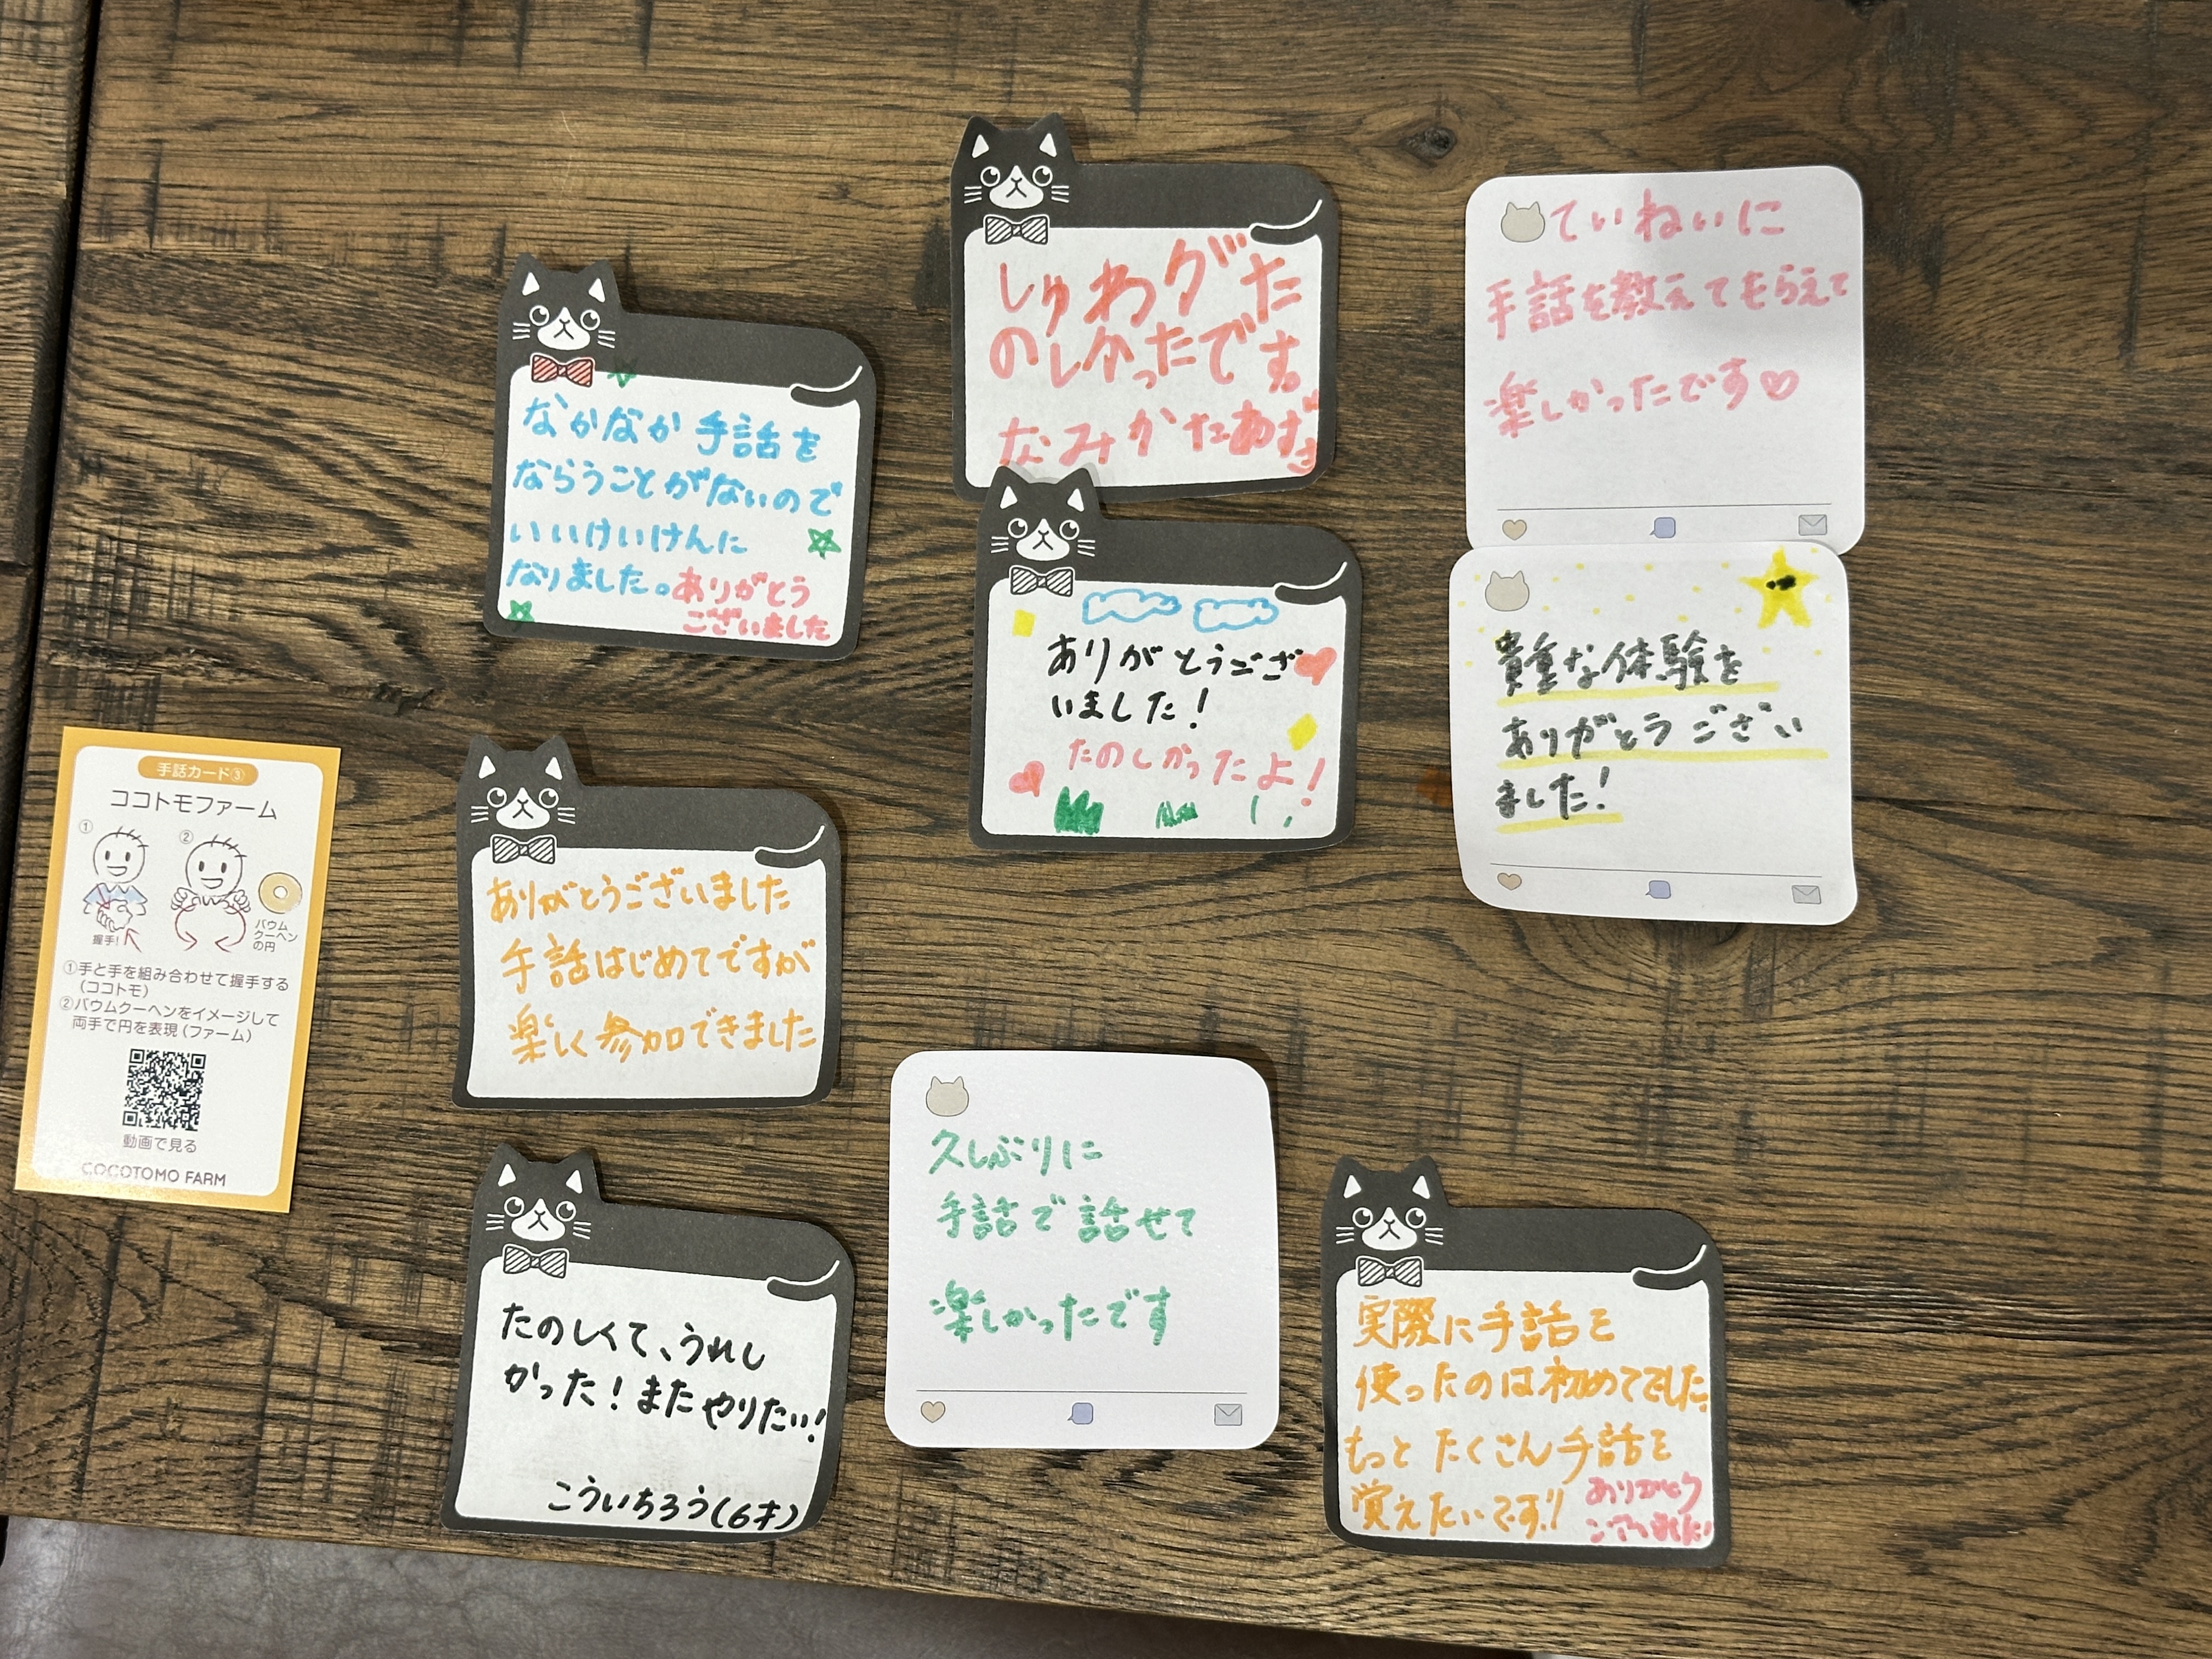 なかなか手話を
ならうことがないので
いいけいけんに
なりました。ありがとう
ございました
しゅわがた
のしかったです。
なみかたあずさ
ていねいに
手話を教えてもらえて
楽しかったです♡
ありがとうござ
いました!
たのしかったよ!
貴重な体験を
ありがとうござい
ました!
手話カード③
ココトモファーム
①
②
握手!
バウム
クーヘン
の円
①手と手を組み合わせて握手する
(ココトモ)
②バウムクーヘンをイメージして
両手で円を表現(ファーム)
動画で見る
COCOTOMO FARM
ありがとうございました
手話はじめてですが
楽しく参加できました
たのしくて、うれし
かった!またやりたい!
こういちろう(6才)
久しぶりに
手話で話せて
楽しかったです
実際に手話を
使ったのは初めてでした。
もっとたくさん手話を
覚えたいです!!
ありがとう
ございました!